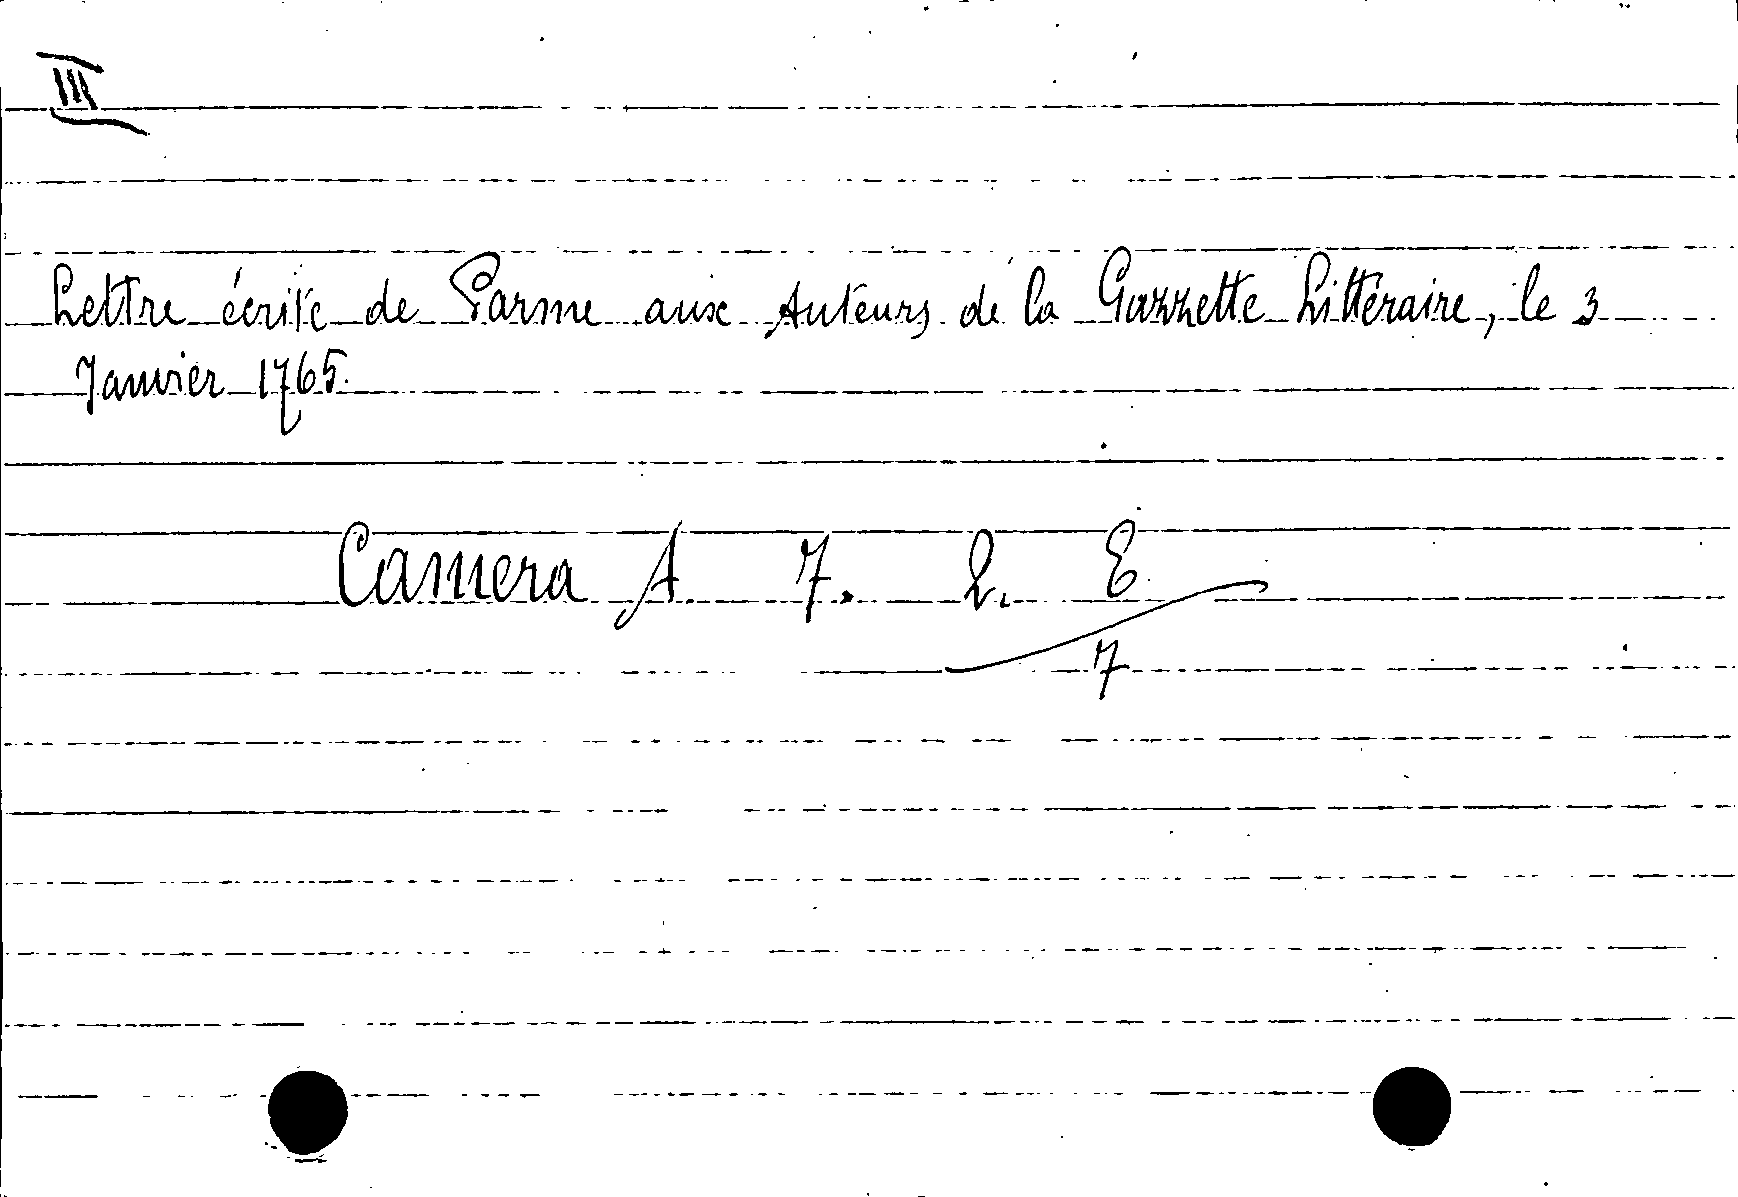 III
Lettre écrite de Parme aux Auteurs de la Gazzette Littéraire, le 3
Janvier 1765.
Camera A. 7. 2. E.
7